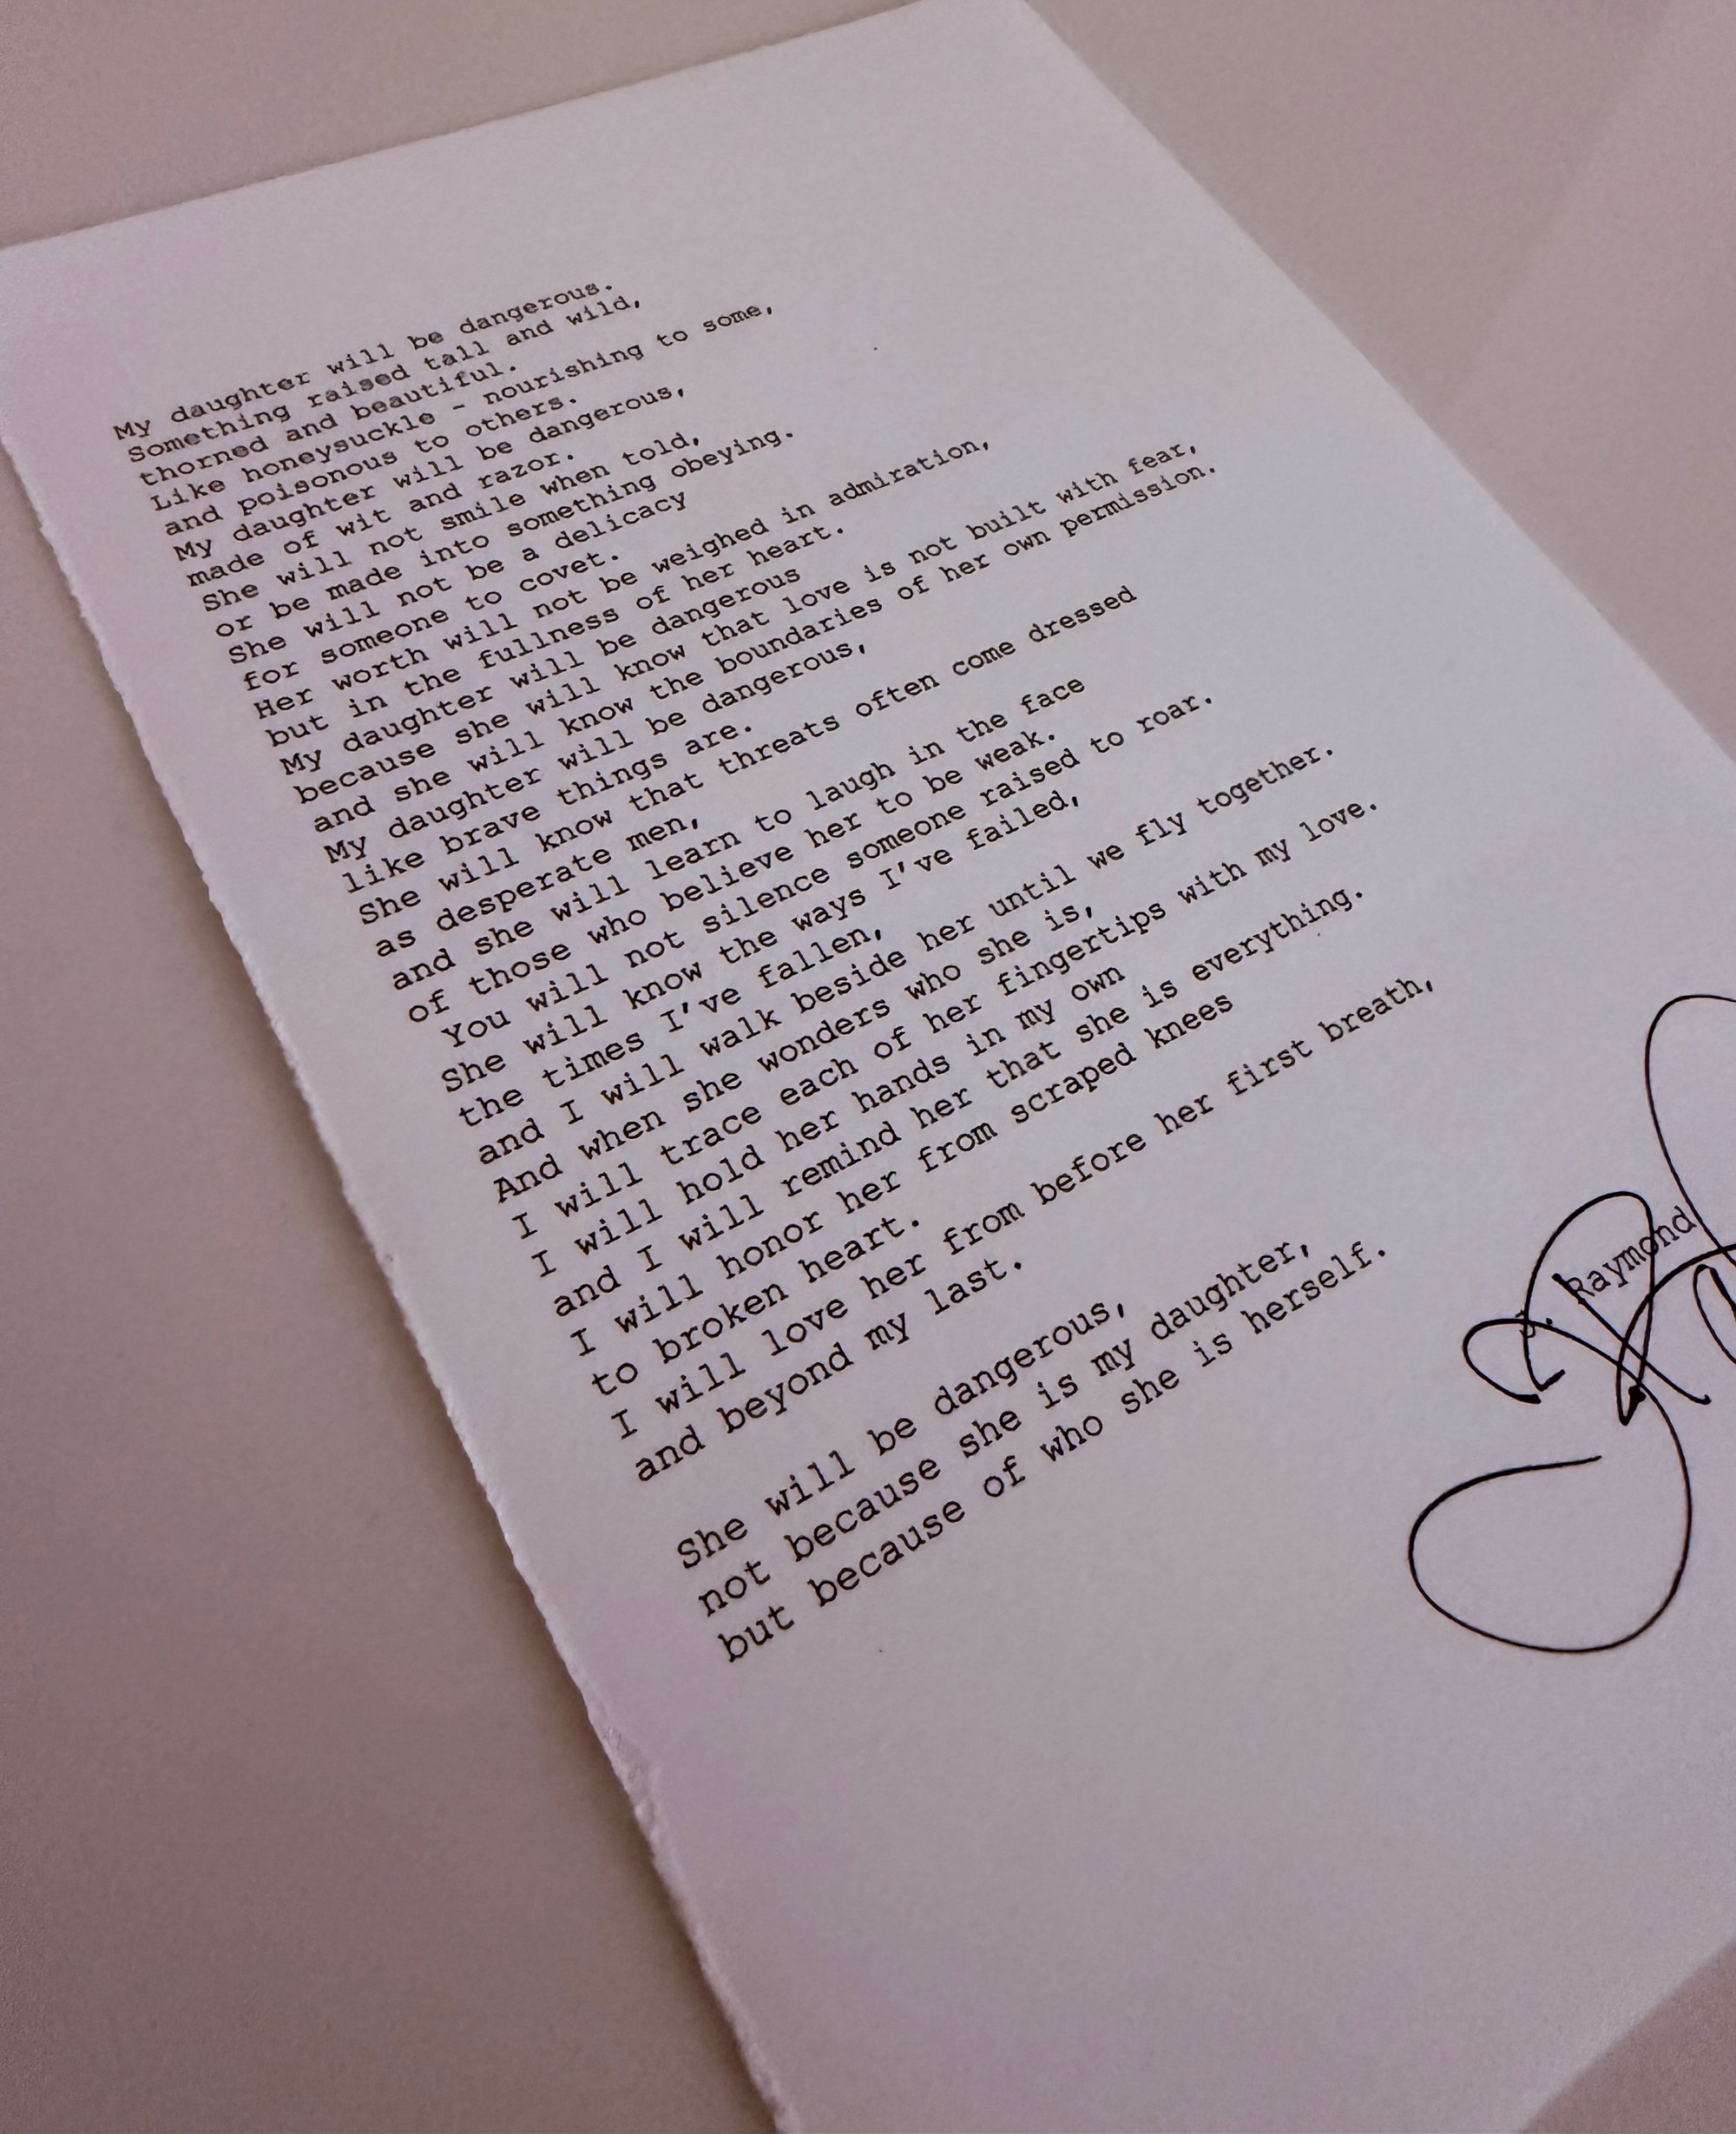 My daughter will be dangerous.
Something raised tall and wild,
thorned and beautiful.
Like honeysuckle - nourishing to some,
and poisonous to others.
My daughter will be dangerous,
made of wit and razor.
She will not smile when told,
or be made into something obeying.
She will not be a delicacy
for someone to covet.
Her worth will not be weighed in admiration,
but in the fullness of her heart.
My daughter will be dangerous
because she will know that love is not built with fear,
and she will know the boundaries of her own permission.
My daughter will be dangerous,
like brave things are.
She will know that threats often come dressed
as desperate men,
and she will learn to laugh in the face
of those who believe her to be weak.
You will not silence someone raised to roar.
She will know the ways I've failed,
the times I've fallen,
and I will walk beside her until we fly together.
And when she wonders who she is,
I will trace each of her fingertips with my love.
I will hold her hands in my own
and I will remind her that she is everything.
I will honor her from scraped knees
to broken heart.
I will love her from before her first breath,
and beyond my last.
She will be dangerous,
not because she is my daughter,
but because of who she is herself.
J. Raymond